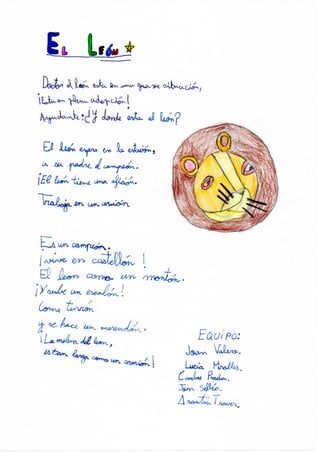 El León
Doctor el león esta en una grave situación,
¡Esta en plena adopción!
Ayudante: ¿Y donde esta el león?
El león espera en la estación,
a su padre el campeón.
¡El león tiene una afición.
Trabaja en un avión
Es un campeón.
¡vive en castellón!
El leon come un montón.
¡Y sube un escalón!
Come turrón
y se hace un merendón.
¡La melena del leon,
es tan larga como un camión!
EQUIPO:
Joan Valero.
Lucía Miralles.
Carlos Prades.
Arantxa Traver.